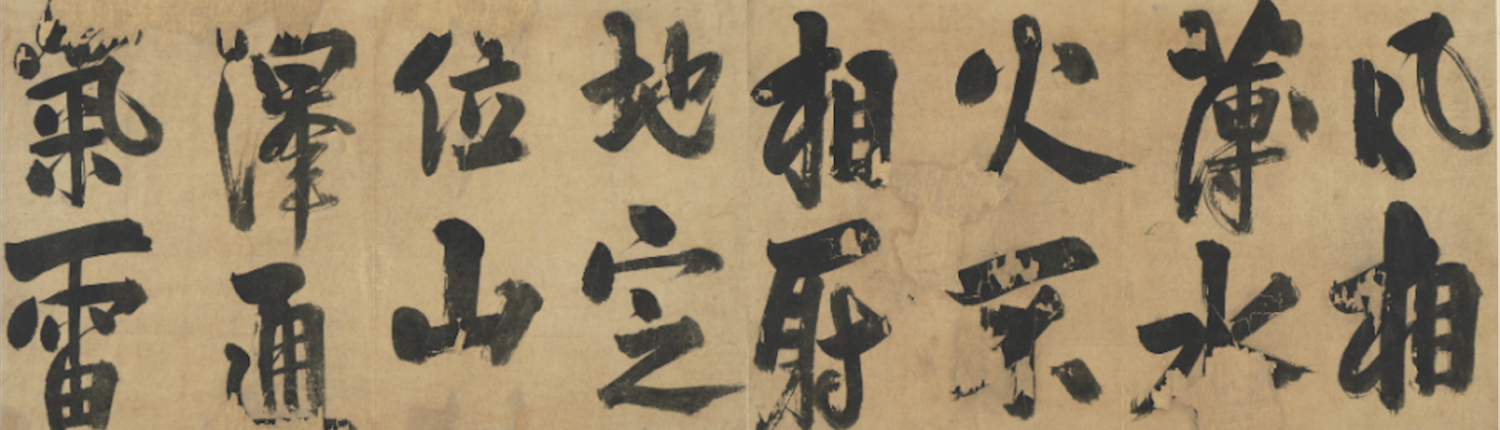 風相
薄水
火不
相射
地定
位山
澤通
氣雷